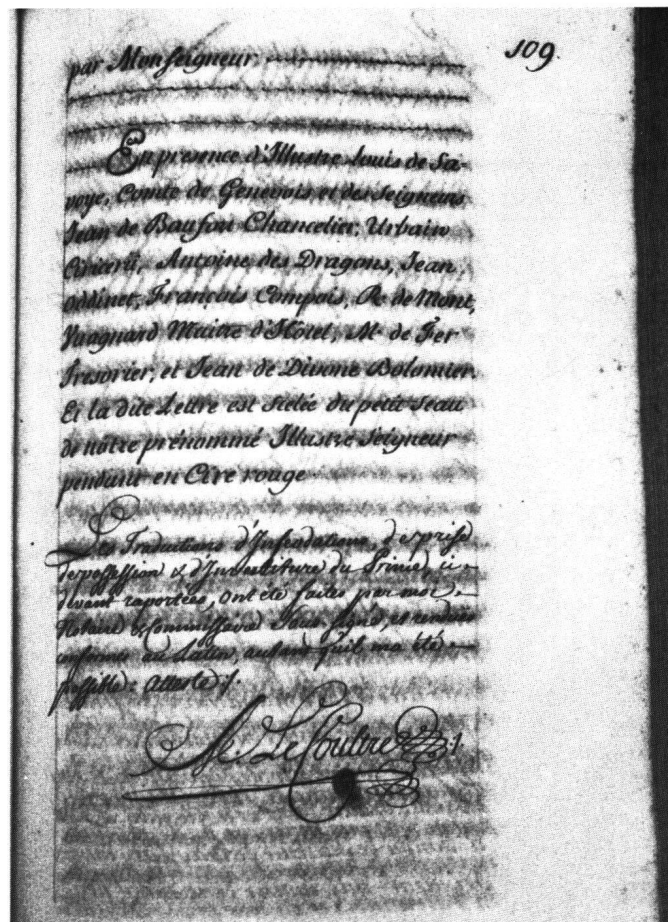 109
par Monseigneur
En presence d'Illustre Louis de Sa-
voye, Comte de Genevois et des Seigneurs
Jean de Baufou Chancelier, Urbain
Antoine des Dragons, Jean
Oddinet, François Compois, R. de Mont,
Vuagnard Maitre d'Hôtel, M. de Fer
Tresorier, et Jean de Divone Bolomier.
Et la dite Lettre est scelée du petit Seau
de nôtre prénommé Illustre Seigneur
pendant en Cire rouge
Les Traductions d'Infeodations, de prise
de possession & d'Investiture du Prince, ci
devant raportées, ont été faites par moi
Notaire & Commissaire Sous signé, et rendues
conforme au Latin, autant qu'il m'a été
possible: Atteste
Le Coultre